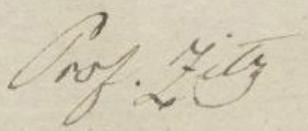 Prof. Zitz